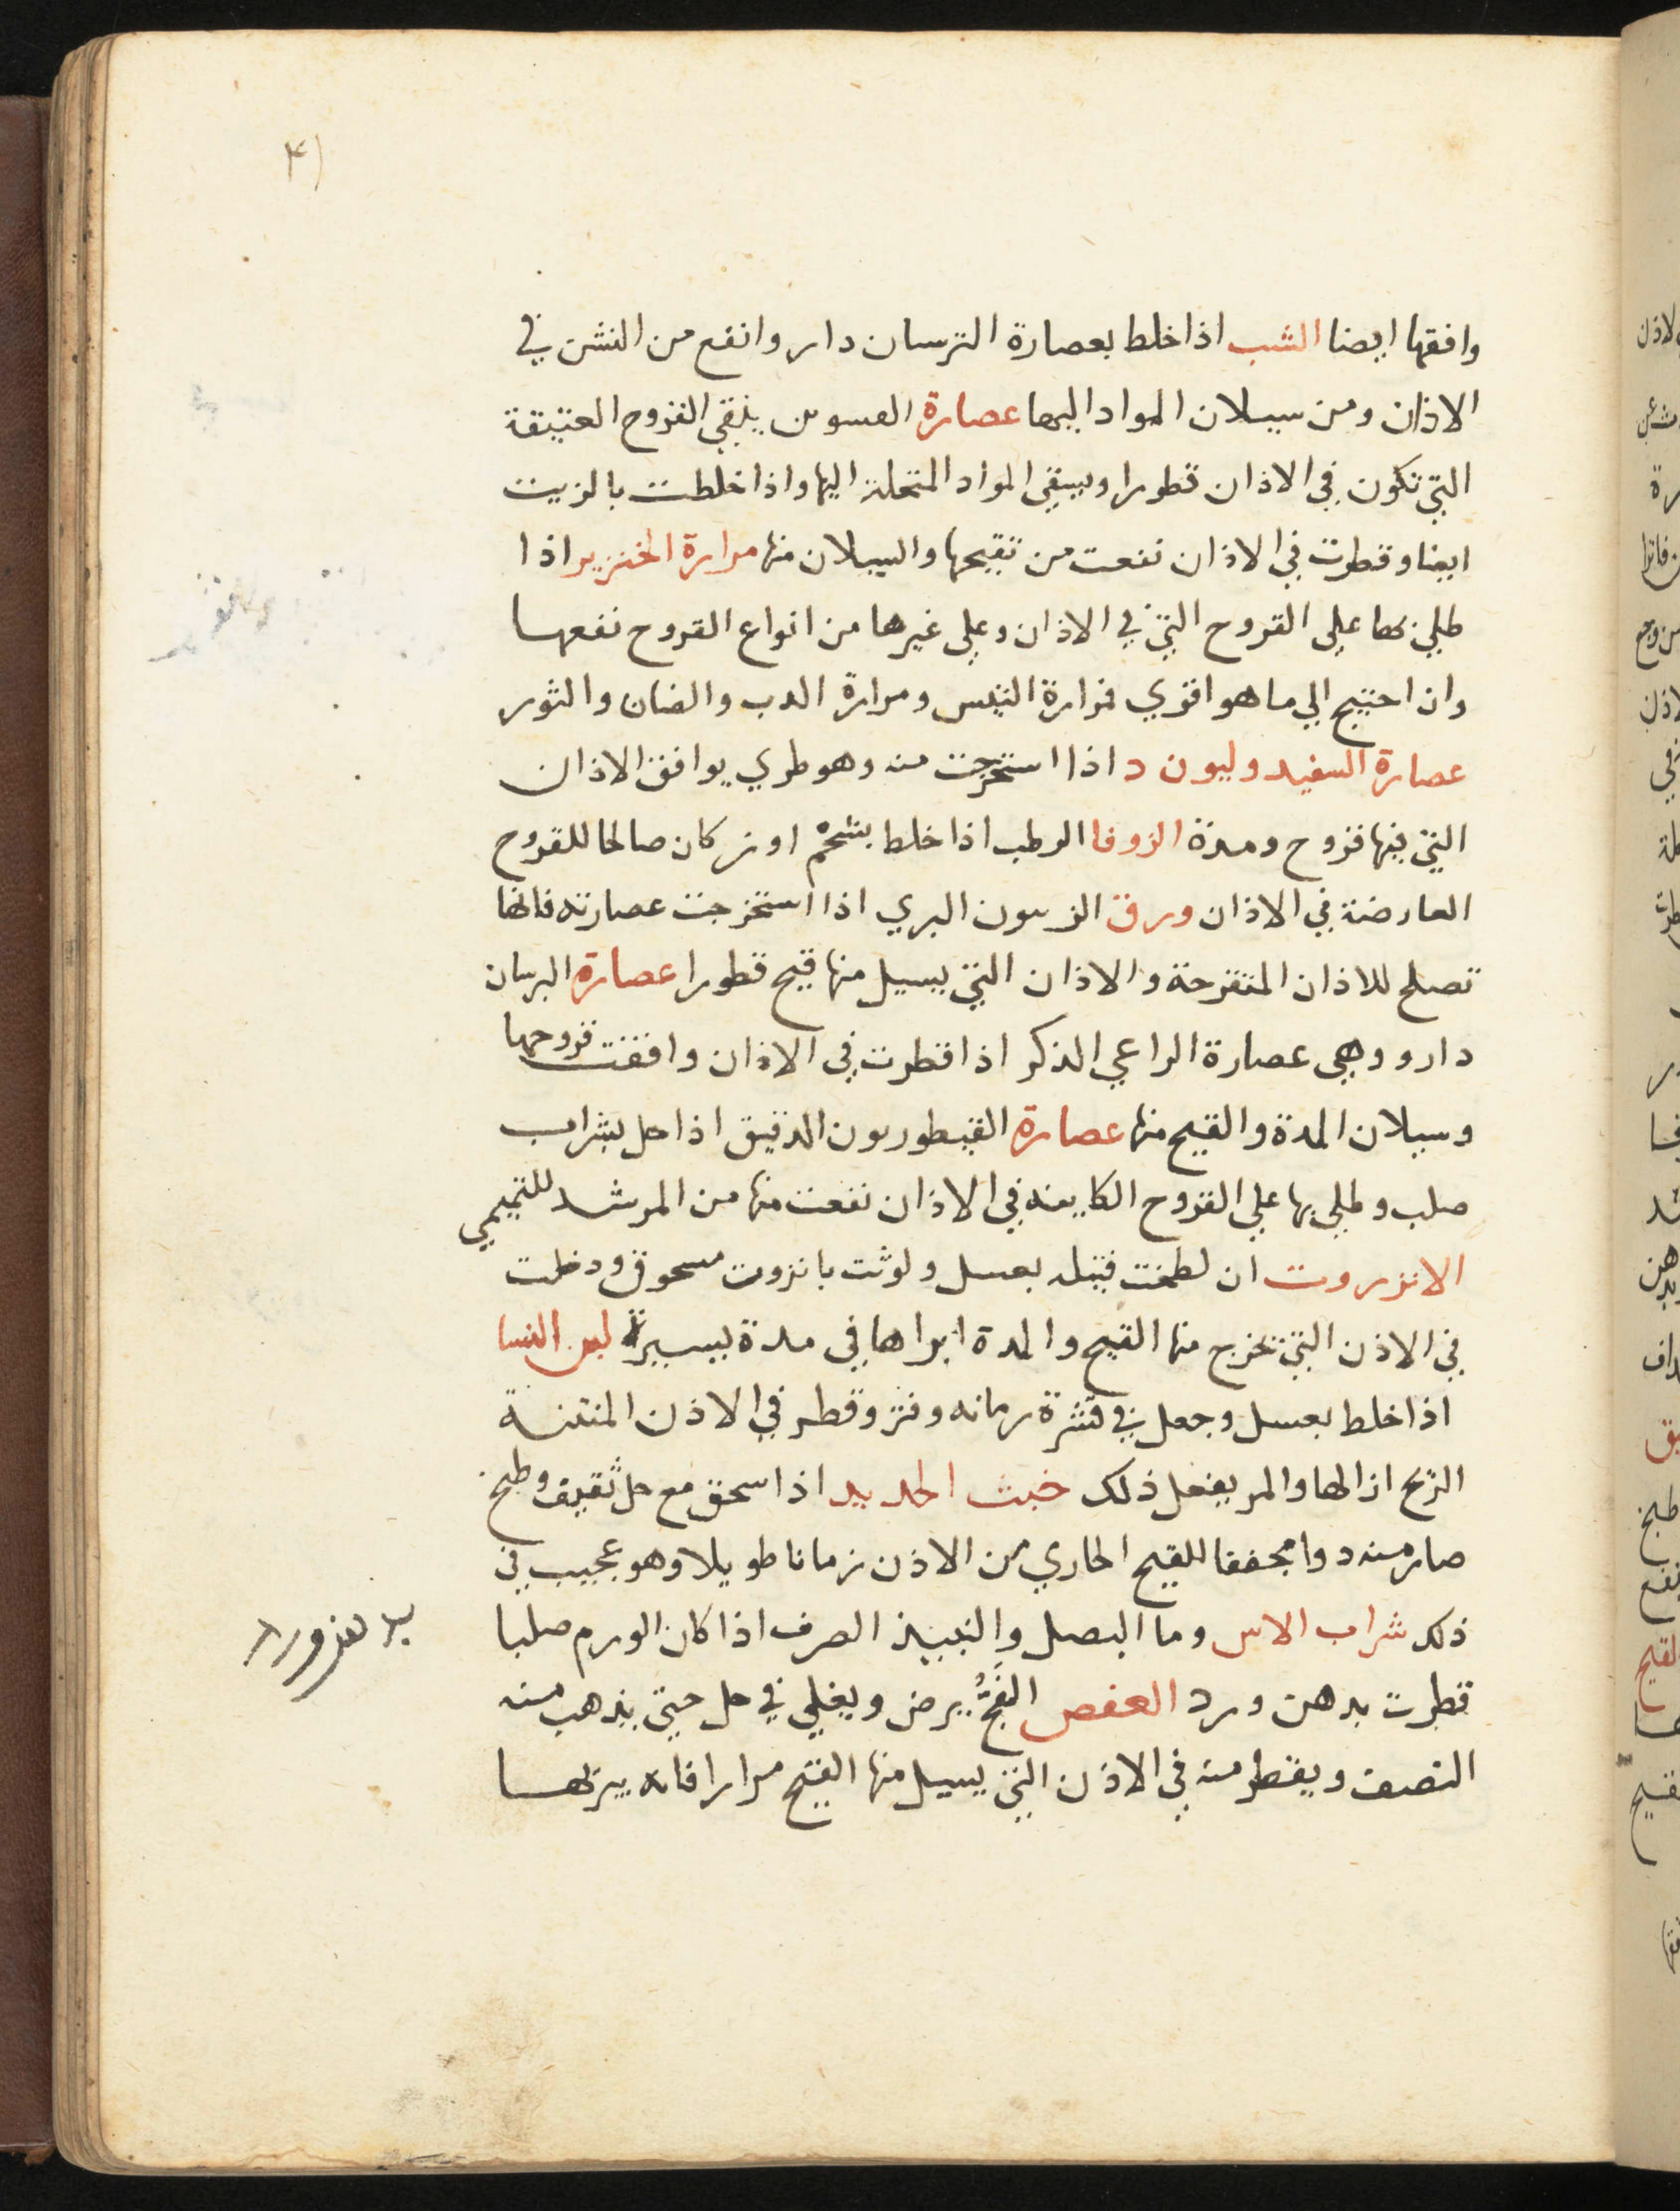 ۴۱
وافقها ايضا الشب اذا خلط بعصارة الترسان دار وانفع من النشن في
الاذان ومن سيلان المواد اليها عصارة العسوس ينقي القروح العتيقة
التي تكون في الاذان قطورا ويبقي المواد المتحلة اليها واذا خلطت بالزيت
ايضا وقطرت في الاذان نفعت من تقيحها والسيلان منها مرارة الخنزير اذا
طلي بها علي القروح التي في الاذان وعلي غيرها من انواع القروح نفعها
وان احتيج الي ما هو اقوي فمرارة التيس ومرارة الدب والضان والثور
عصارة السفيد وليون د اذا استخرجت منه وهو طري يوافق الاذان
التي فيها قروح ومدة الزوفا الرطب اذا خلط بشحم اوز كان صالحا للقروح
العارضة في الاذان ورق الزيتون البري اذا استخرجت عصارته فانها
تصلح للاذان المتقرحة والاذان التي يسيل منها قيح قطورا عصارة البرسان
دارو وهي عصارة الراعي الذكر اذا قطرت في الاذان وافقت قروحها
وسيلان المدة والقيح منها عصارة القيطوريون الدقيق اذا حل بشراب
صلب وطلي بها علي القروح الكاينه في الاذان نفعت منها من المرشد للتميمي
الانزروت ان لطخت فتيله بعسل ولوثت بانزروت مسحوق ودخلت
في الاذن التي تخرج منها القيح والمدة ابراها في مدة يسيرة لبن النسا
اذا خلط بعسل وجعل في قشرة رمانه وفتر وقطر في الاذن المنتنة
الريح ازالها والمر يفعل ذلك خبث الحديد اذا سحق مع خل ثقيف وطبخ
صار منه دوا مجففا للقيح الجاري من الاذن زمانا طويلا وهو عجيب في
ذلك شراب الاس وما البصل والنبيذ الصرف اذا كان الورم صلبا
قطرت بدهن ورد العفص الفج يرض ويغلي في خل حتي يذهب منه
النصف ويقطر منه في الاذن التي يسيل منها القيح مرارا فانه يبريها